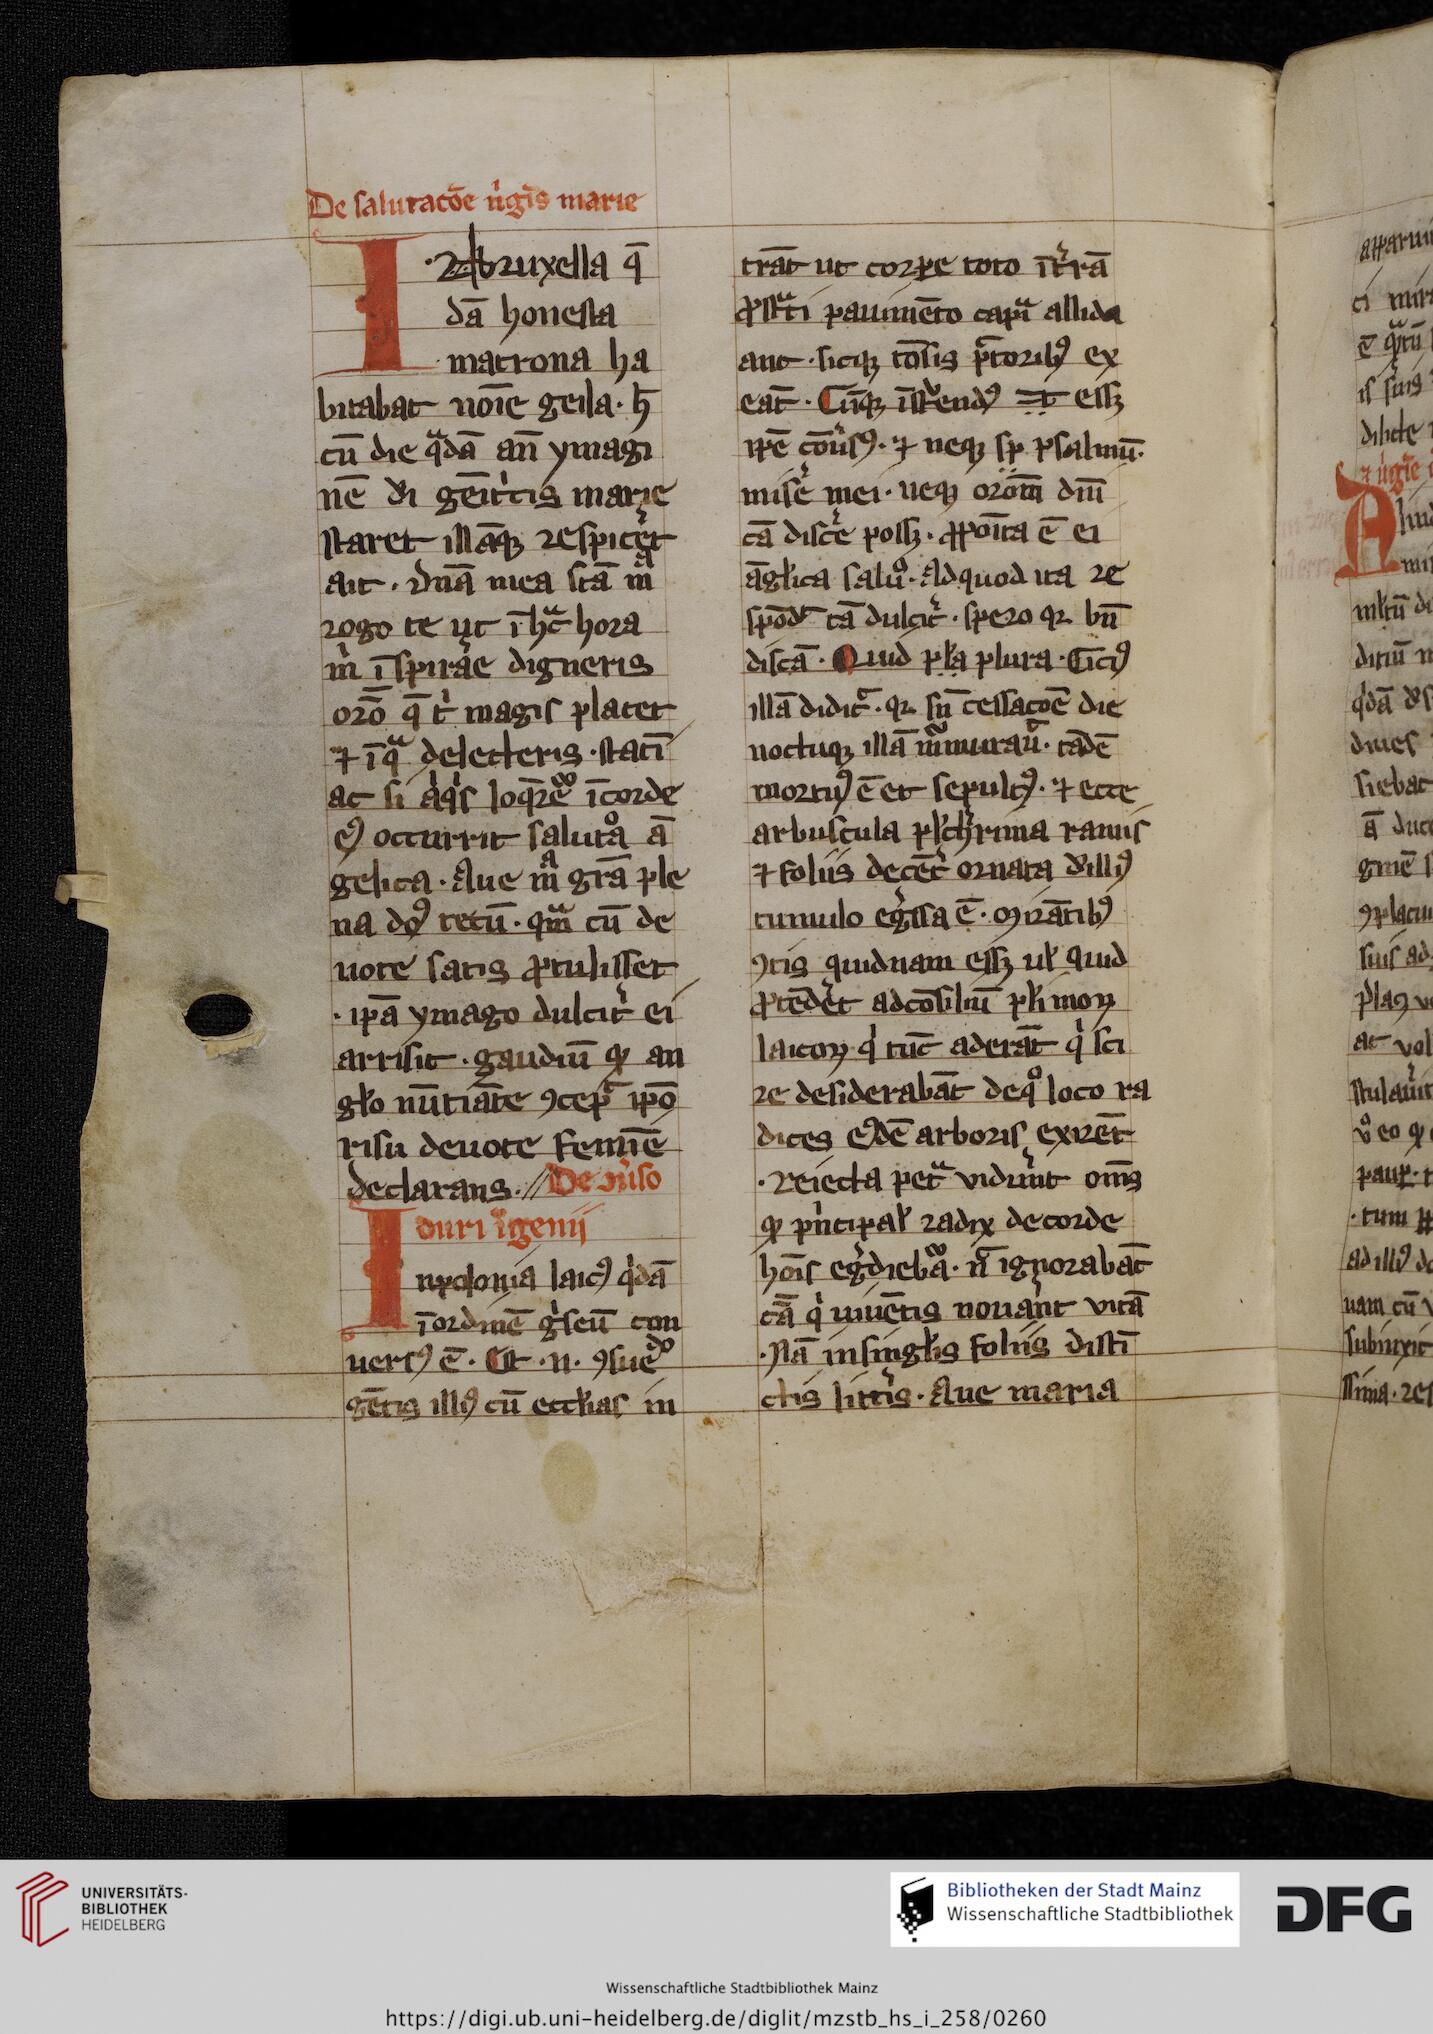 De salutacōe v̓gīs marie
I
bruxella q̄
dā honesta
matrona ha
bitabat noīe geila · h̄
cū die qͣdā an̄ ymagi
nē di gēit̓cis marie
staret illāqꝫ respic̓et
ait · dn̄a mea sc̄a mͣ
rogo te ut ī hͣc hora
m̓ īspirᷓe digneris
orō q̄ t̓ magis placet
⁊ ī qͣ delecteris · statī
ac si aͥqͥs loq̄rēᷣ ī corde
eꝰ occurrit salutᷓo ā
gelica · Aue mͣ grā ple
na dn̄ꝰ tecū · qͣm cū de
uote satis ꝓtulisset
· ip̄a ymago dulcit̓ ei
arrisit · gaudiū qꝫ an
gl̄o nūtiāte ꝯcep̄ ip̄o
risu deuote femīe
declarans · // De uͥso
duri īgenij
I
n polonia laicꝰ qͥdā
ī ordinē gͥseū con
uersꝰ ē · Et · n · ꝯsuedͦ
gētis illiꝰ cū ecclīas in
trāt ut corpe toto ī t̓rā
ꝓstͣti pauimēto capͣ allida
ant · sicqꝫ tōsis p̄toribꝰ ex
eāt · Cūqꝫ īstͬendꝰ essꝫ
ip̄e cōu̓sꝰ · ⁊ neqꝫ sp psalmū ·
misēͬ mei · neqꝫ orōm dnī
cā disce̓ possꝫ · ꝓpoīta ē ei
āgl̄ica salutͦ · Ad quod ita re
spōdͭ tā dulcit̓ · spero qꝛ bn̄
discā · Quid pl̄a plura · Citiꝰ
illā didic̄ · qꝛ sn̄ cessacōe die
noctuqꝫ illā mͬmurau̓ · tādē
mortuꝰ ē et sepultꝰ · ⁊ ecce
arbuscula pl̓ch̓rima ramis
⁊ foliis decēt̓ ornata d̓ illiꝰ
tumulo eg̓ssa ē · Mirātibꝰ
ꝯtis quidnam essꝫ ul̓ quid
ꝓtēd̓et ad cōsiliū pl̄imoꝝ
laicoꝝ qͥ tūc aderāt qͥ sci
re desiderabāt de qͦ loco ra
dices eꝰdē arboris exirēt
· Reiecta petͣ vid̓unt om̄s
qꝫ pͥncipal̓ radix de corde
hoīs eg̓diebᷓa · n̄ ignorabāt
cā qͥ uiuētis nouᷓant vitā
· Nā in singl̄is foliis disti
ctis litt̓is · Aue maria
UNIVERSITÄTS-
BIBLIOTHEK
HEIDELBERG
Bibliotheken der Stadt Mainz
Wissenschaftliche Stadtbibliothek
DFG
Wissenschaftliche Stadtbibliothek Mainz
https://digi.ub.uni-heidelberg.de/diglit/mzstb_hs_i_258/0260